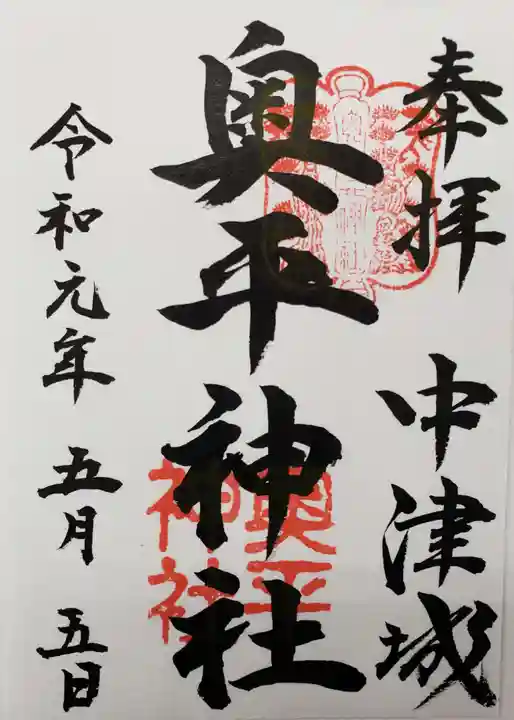 奉拝 中津城
奥平神社
奥平
神社
令和元年 五月 五日